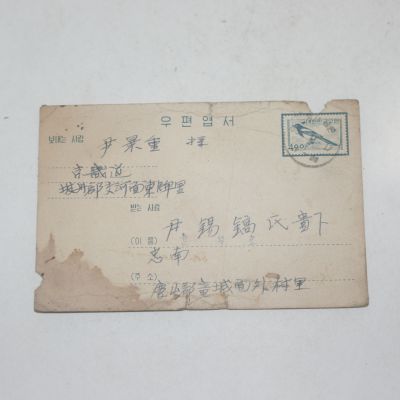 우편엽서
보내는 사람
尹景重 拝
京畿道
坡州郡交河面東牌里
받는 사람
尹錫鎬氏貴下
(이 름)
忠南
(주 소)
唐津郡 面 村里